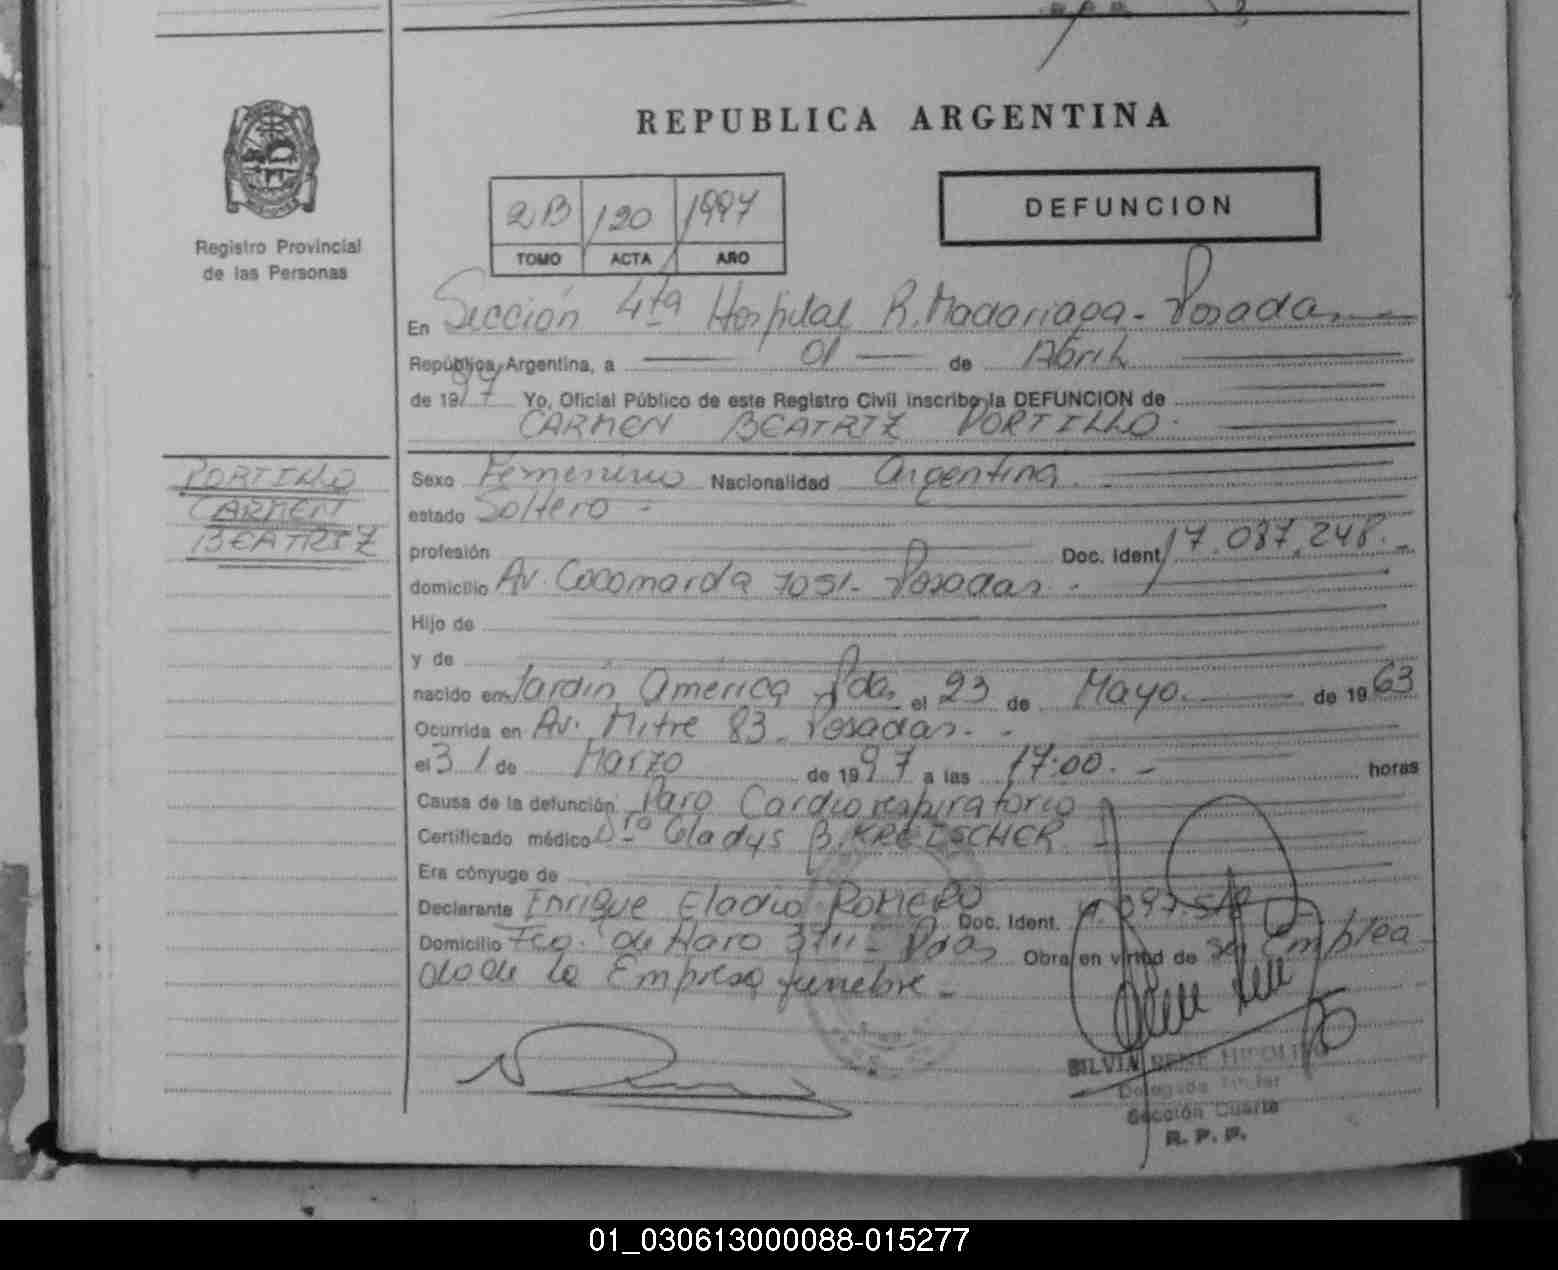 REPUBLICA ARGENTINA
Registro Provincial
de las Personas
2B 120 1997
TOMO ACTA AÑO
DEFUNCION
En Sección 4ta Hospital R. Madariaga - Posadas
República Argentina, a 01 de Abril
de 1997 Yo, Oficial Público de este Registro Civil inscribo la DEFUNCION de
CARMEN BEATRIZ PORTILLO
PORTILLO
CARMEN
BEATRIZ
Sexo Femenino Nacionalidad Argentina
estado Soltero
profesión Doc. Ident. 17.087.248
domicilio Av. Cocomarola 7051 - Posadas
Hijo de
y de
nacido en Jardín America Pdas el 23 de Mayo de 1963
Ocurrida en Av. Mitre 83 - Posadas
el 31 de Marzo de 1997 a las 17:00 horas
Causa de la defunción Paro Cardiorespiratorio
Certificado médico Gladys B. KREISCHER
Era cónyuge de
Declarante Enrique Eladio ROMERO Doc. Ident.
Domicilio Fco. de Haro 3711 - Pdas Obra en virtud de ser Emplea-
do de la Empresa funebre -
SILVIA RENE HIPOLITO
Delegada Titular
Sección Cuarta
R. P. P.
01_030613000088-015277